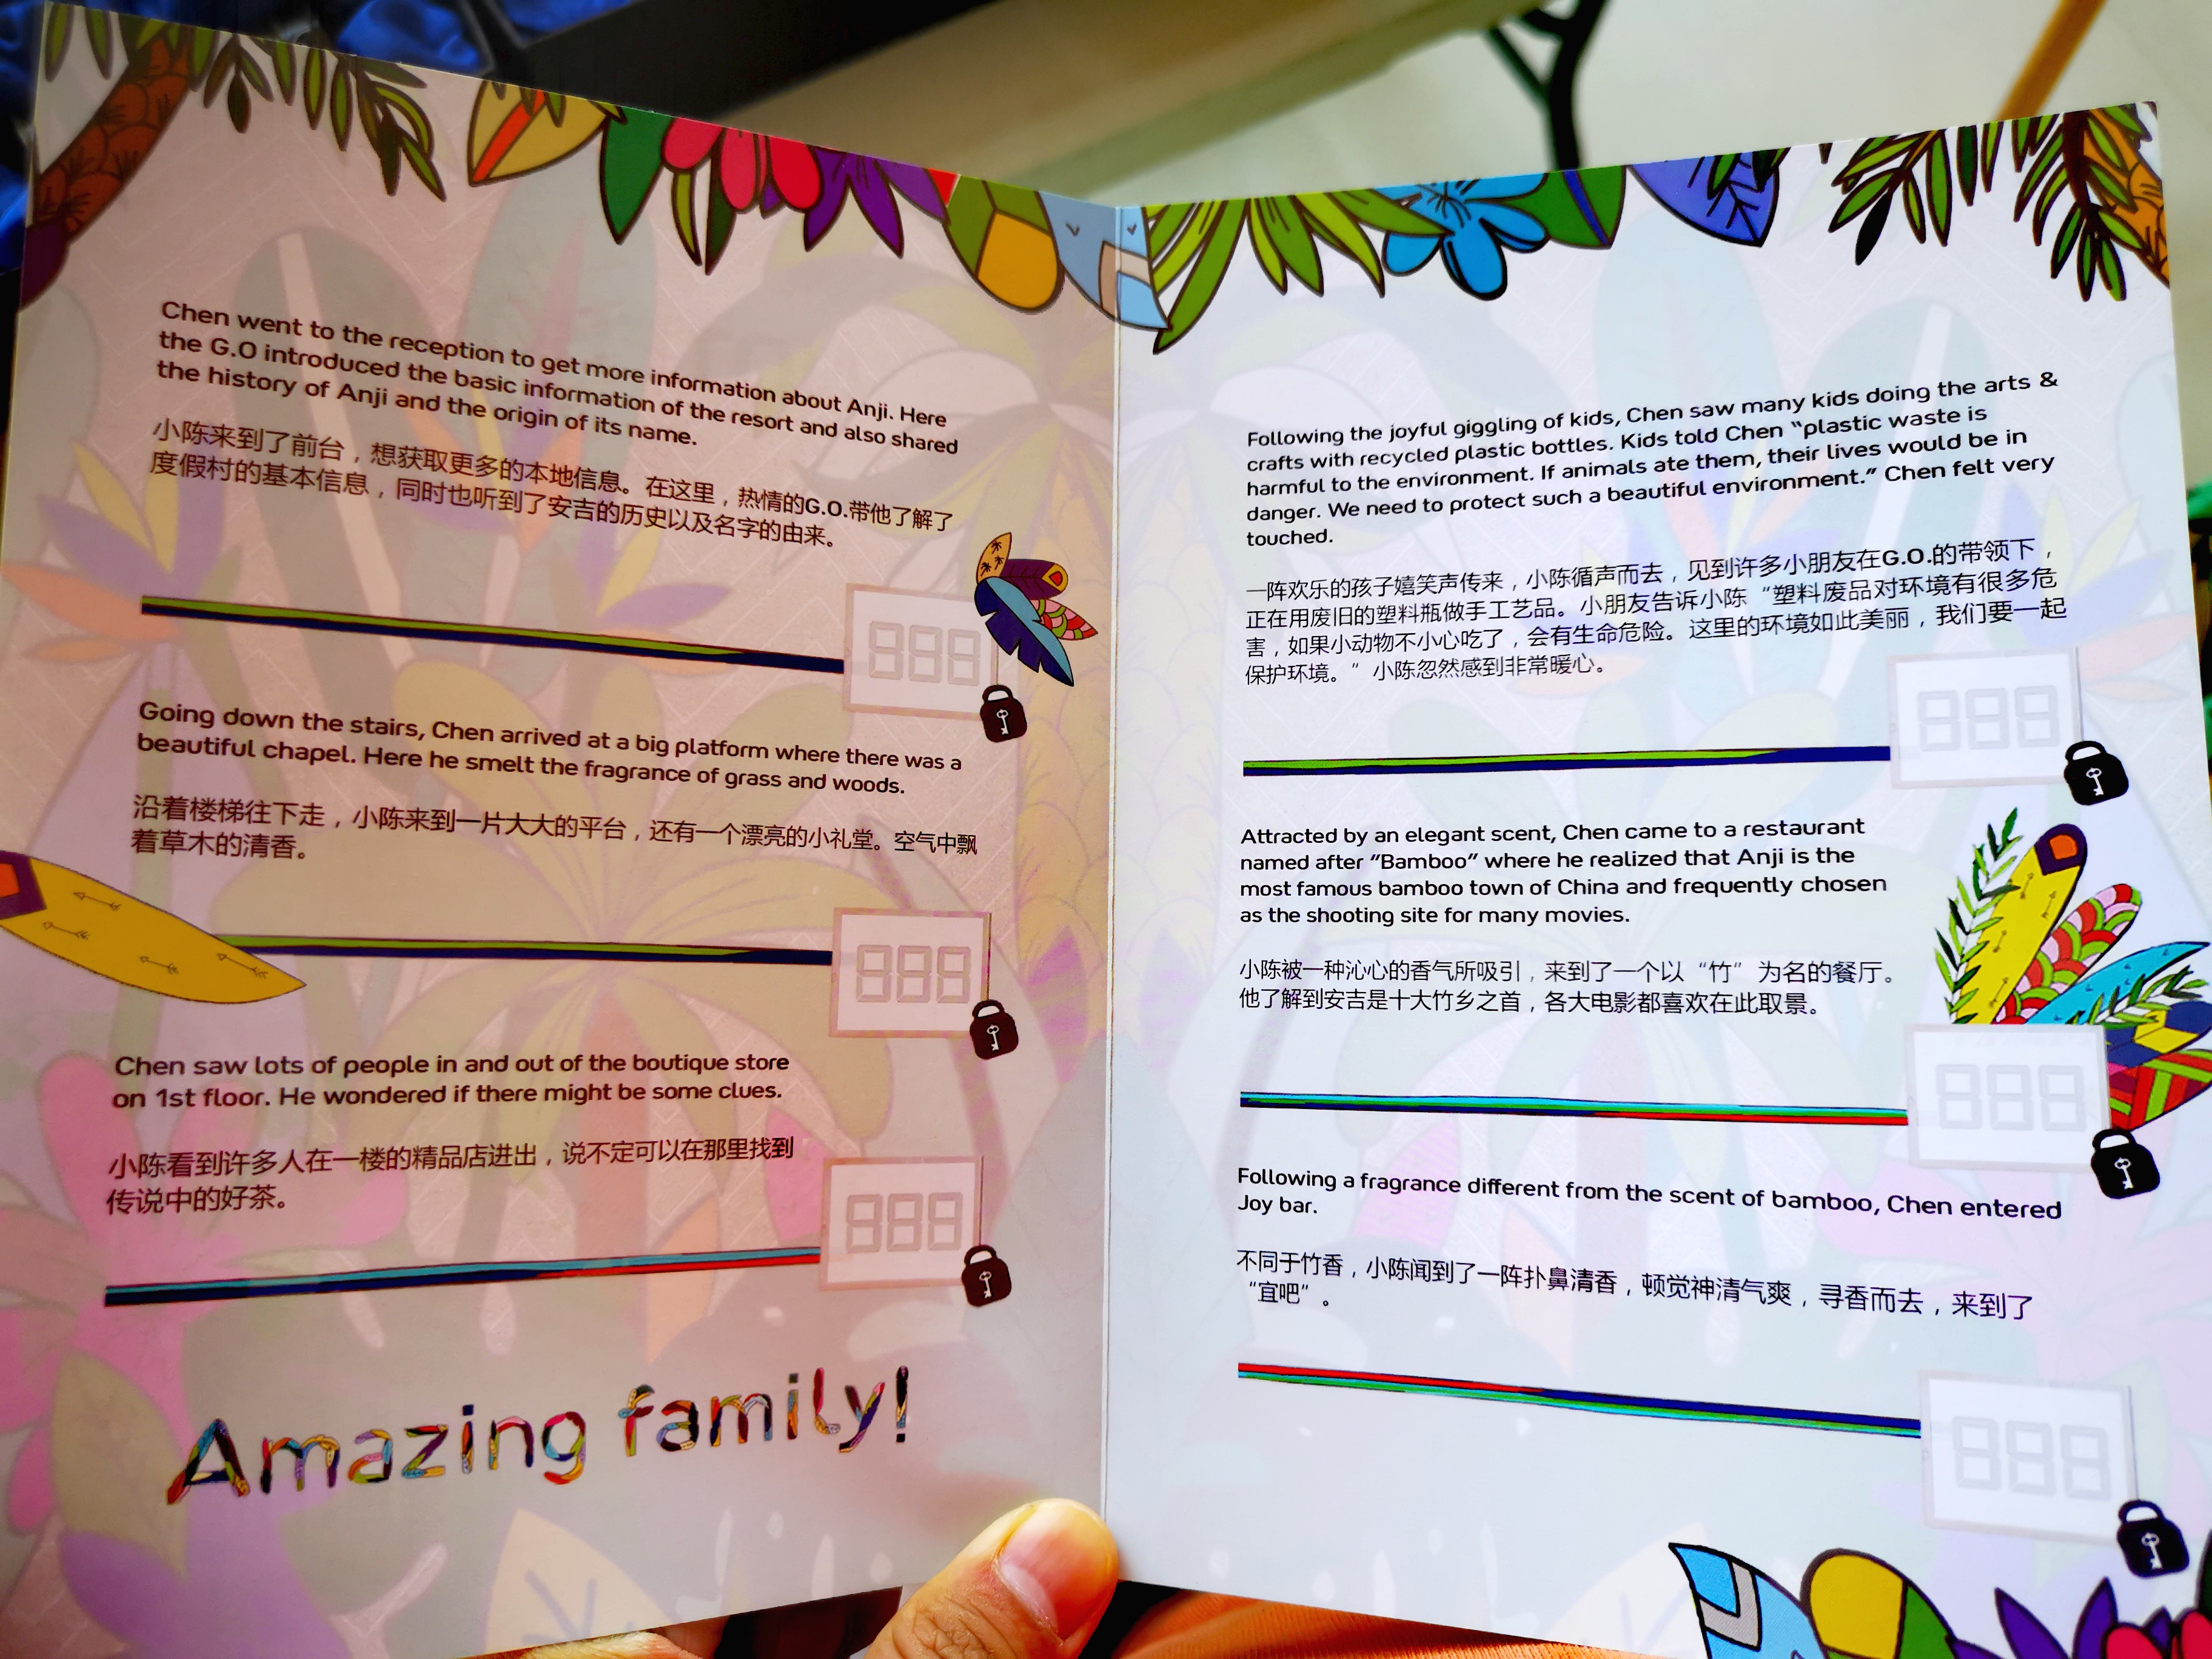 Chen went to the reception to get more information about Anji. Here
the G.O introduced the basic information of the resort and also shared
the history of Anji and the origin of its name.
小陈来到了前台，想获取更多的本地信息。在这里，热情的G.O.带他了解了
度假村的基本信息，同时也听到了安吉的历史以及名字的由来。
888
Going down the stairs, Chen arrived at a big platform where there was a
beautiful chapel. Here he smelt the fragrance of grass and woods.
沿着楼梯往下走，小陈来到一片大大的平台，还有一个漂亮的小礼堂。空气中飘
着草木的清香。
888
Chen saw lots of people in and out of the boutique store
on 1st floor. He wondered if there might be some clues.
小陈看到许多人在一楼的精品店进出，说不定可以在那里找到
传说中的好茶。
888
Amazing family!
Following the joyful giggling of kids, Chen saw many kids doing the arts &
crafts with recycled plastic bottles. Kids told Chen “plastic waste is
harmful to the environment. If animals ate them, their lives would be in
danger. We need to protect such a beautiful environment.” Chen felt very
touched.
一阵欢乐的孩子嬉笑声传来，小陈循声而去，见到许多小朋友在G.O.的带领下，
正在用废旧的塑料瓶做手工艺品。小朋友告诉小陈“塑料废品对环境有很多危
害，如果小动物不小心吃了，会有生命危险。这里的环境如此美丽，我们要一起
保护环境。”小陈忽然感到非常暖心。
888
Attracted by an elegant scent, Chen came to a restaurant
named after "Bamboo" where he realized that Anji is the
most famous bamboo town of China and frequently chosen
as the shooting site for many movies.
小陈被一种沁心的香气所吸引，来到了一个以“竹”为名的餐厅。
他了解到安吉是十大竹乡之首，各大电影都喜欢在此取景。
888
Following a fragrance different from the scent of bamboo, Chen entered
Joy bar.
不同于竹香，小陈闻到了一阵扑鼻清香，顿觉神清气爽，寻香而去，来到了
“宜吧”。
888